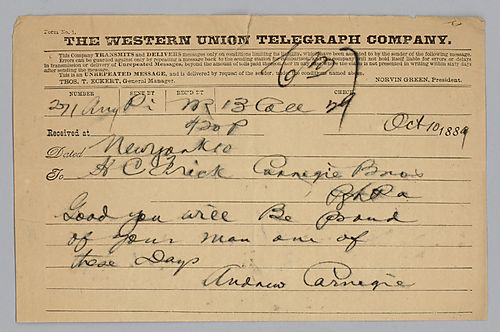 Form No. 1.
THE WESTERN UNION TELEGRAPH COMPANY.
This Company TRANSMITS and DELIVERS messages only on conditions limiting its liability, which have been assented to by the sender of the following message.
Errors can be guarded against only by repeating a message back to the sending station for comparison, and the company will not hold itself liable for errors or delays
in transmission or delivery of Unrepeated Messages, beyond the amount of tolls paid thereon, nor in any case where the claim is not presented in writing within sixty days
after sending the message.
This is an UNREPEATED MESSAGE, and is delivered by request of the sender, under the conditions named above.
THOS. T. ECKERT, General Manager. NORVIN GREEN, President.
NUMBER SENT BY REC'D BY CHECK
271 Pi 13 Coll
Received at 420 P Oct 10, 1889
Dated New York 10
To H C Frick Carnegie Bros
Pgh Pa
Good you will Be Proud
of your man one of
these Days
Andrew Carnegie